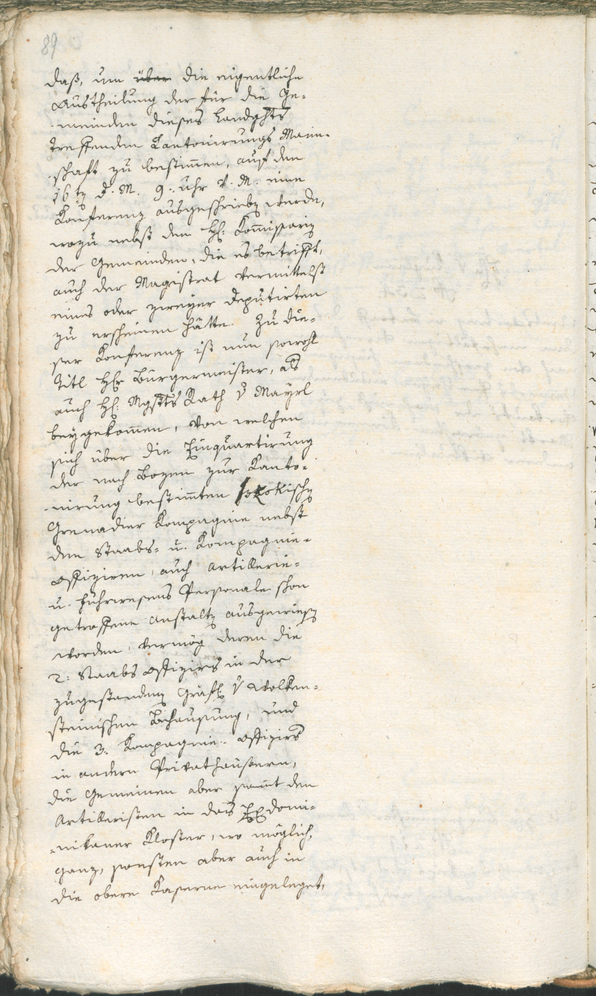 89
daß, um über die eigentliche
Austheilung der für die Ge-
meinden dieses Landghts
treffenden Cantonirungs Mann-
schaft zu bestimmen, auf den
16tn d. M. 9. Uhr V. M. eine
Konferenz ausgeschriebn werde,
wozu nebst den HH. Kommissarien
der Gemeinden, die es betrifft,
auch der Magistrat vermittelst
eines oder zweyer Deputirten
zu erscheinen hätte. Zu die-
ser Konferenz ist nun sowohl
Titl Hr Bürgermeister, als
auch H. Mgsts Rath v Mayrl
beygekommen, von welchen
sich über die Einquartirung
der nach Bozen zur Kanto-
nirung bestimmten
Grenadier Kompagnie nebst
den Staabs- u. Kompagnie-
Offiziren, auch Artillerie-
u. Fuhrwesens Personale schon
getroffene Anstaltn ausgewiesen
worden, vermög deren die
2. Staabs Offiziers in der
zugestanden Gräfl. v Wolken-
steinischen Behausung, und
die 3. Kompagnie- Offiziers
in andern Privathäusern,
die Gemeinen aber samt den
Artilleristen in das PP Domi-
nikaner Kloster, wo möglich,
ganz, sonsten aber auch in
die obere Kaserne eingeleget,